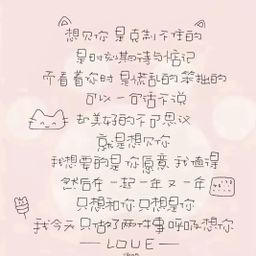 想见你 是克制不住的
是时刻期待与惦记
而看着你时 是慌乱的 笨拙的
可以一句话不说
却美好的不可思议
就是想见你
我想要的是 你愿意 我值得
然后在一起一年又一年
只想和你 只想是你
我今天只做了两件事 呼吸 想你
LOVE